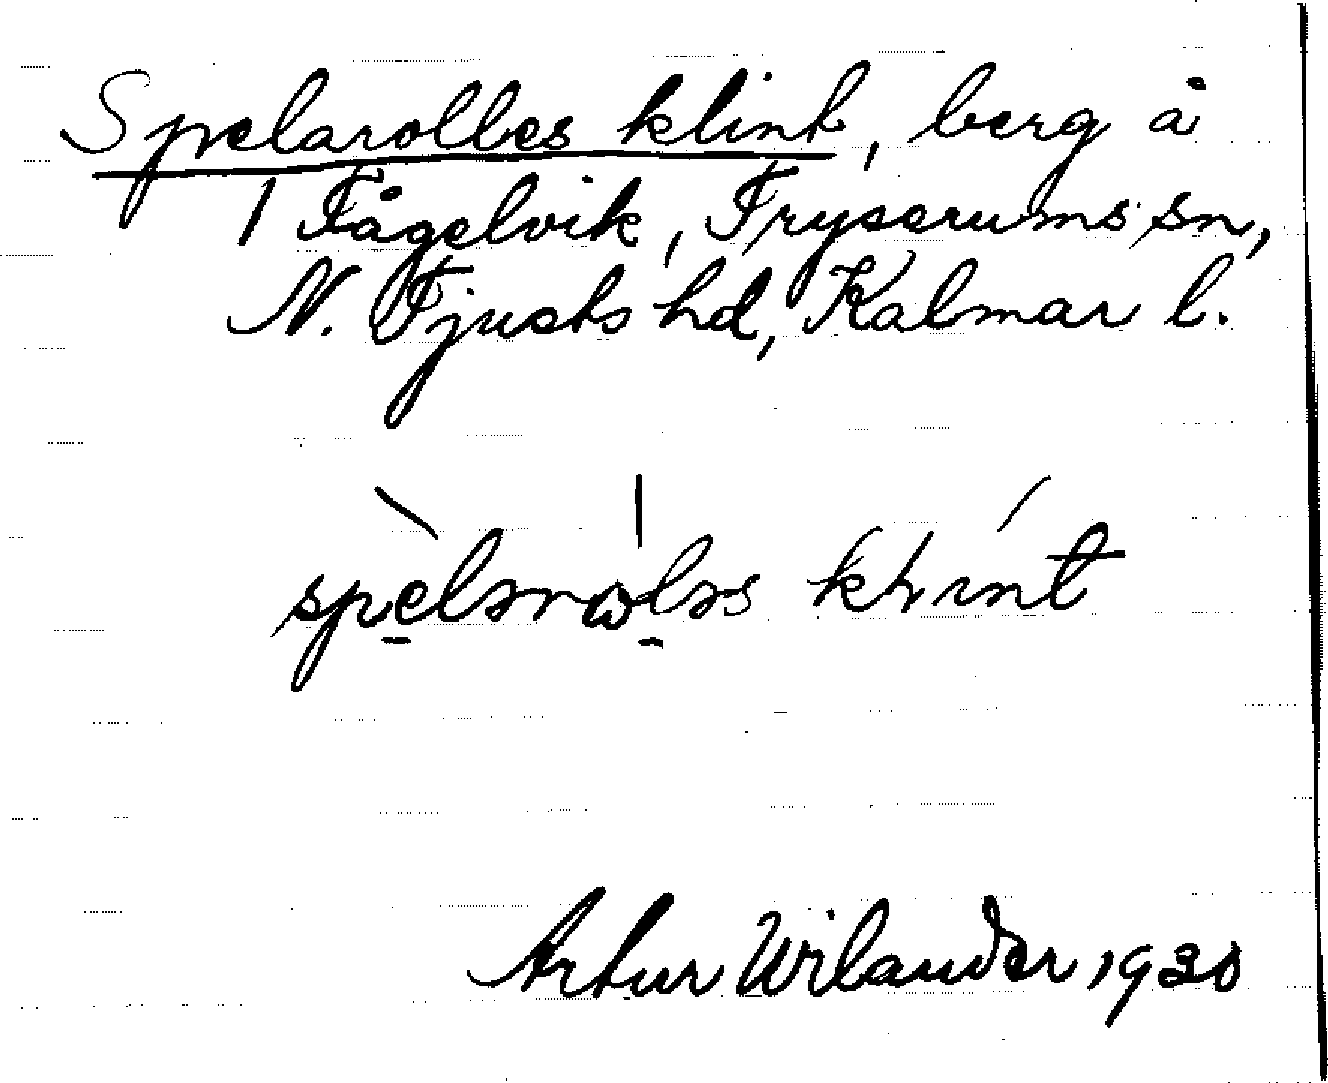 Spelarolles klint, berg å
Fågelvik, Tryserums sn,
N. Tjusts hd, Kalmar l.
klınt
Artur Wilander 1930